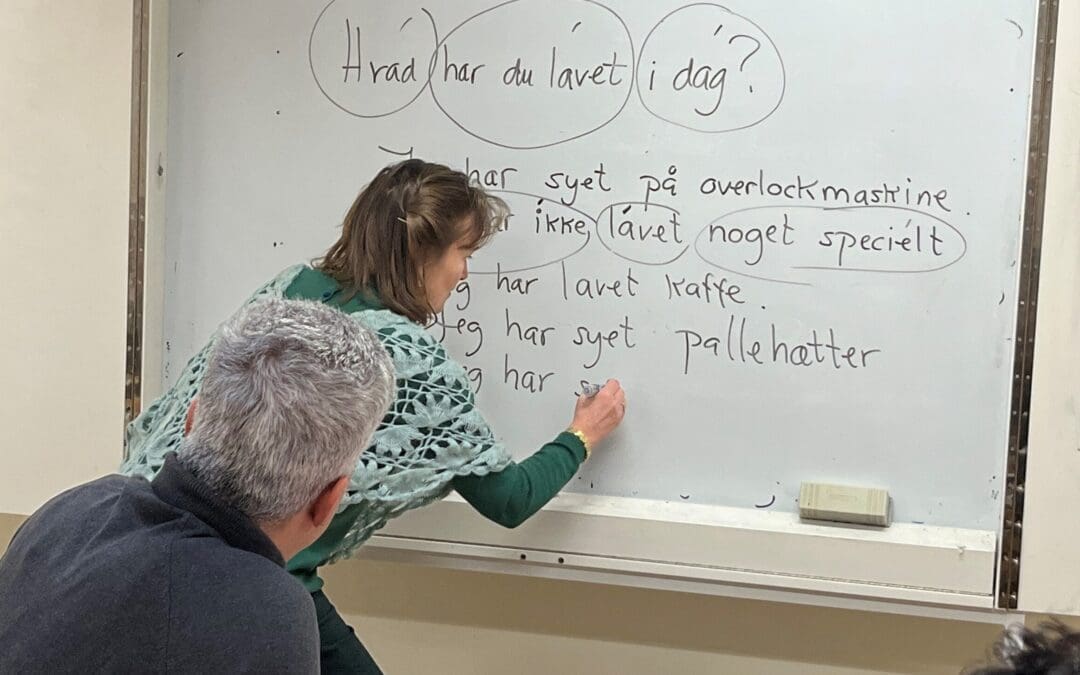 Hvád har du lávet i dág?
har syet på overlockmaskine.
ikke lávet noget speciélt
har lavet kaffe.
Jeg har syet pallehætter
har